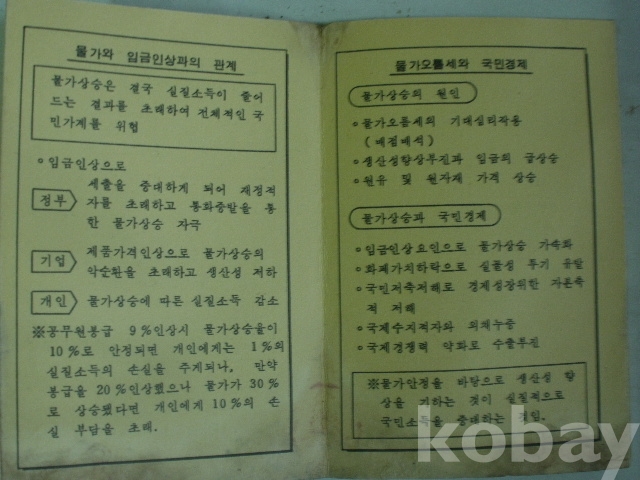 물가와 임금인상과의 관계
물가상승은 결국 실질소득이 줄어
드는 결과를 초래하여 전체적인 국
민가계를 위협
○임금인상으로
정부
세출을 증대하게 되어 재정적
자를 초래하고 통화증발을 통
한 물가상승 자극
기업
제품가격인상으로 물가상승의
악순환을 초래하고 생산성 저하
개인
물가상승에 따른 실질소득 감소
※공무원봉급 9%인상시 물가상승율이
10%로 안정되면 개인에게는 1%의
실질소득의 손실을 주게되나, 만약
봉급을 20%인상했으나 물가가 30%
로 상승됐다면 개인에게 10%의 손
실 부담을 초래.
물가오름세와 국민경제
물가상승의 원인
○물가오름세의 기대심리작용
(매점매석)
○생산성향상부진과 임금의 급상승
○원유 및 원자재 가격 상승
물가상승과 국민경제
○임금인상요인으로 물가상승 가속화
○화폐가치하락으로 실물성 투기 유발
○국민저축저해로 경제성장위한 자본축
적 저해
○국제수지적자와 외채누증
○국제경쟁력 약화로 수출부진
※물가안정을 바탕으로 생산성 향
상을 기하는 것이 실질적으로
국민소득을 증대하는 것임.
kobay